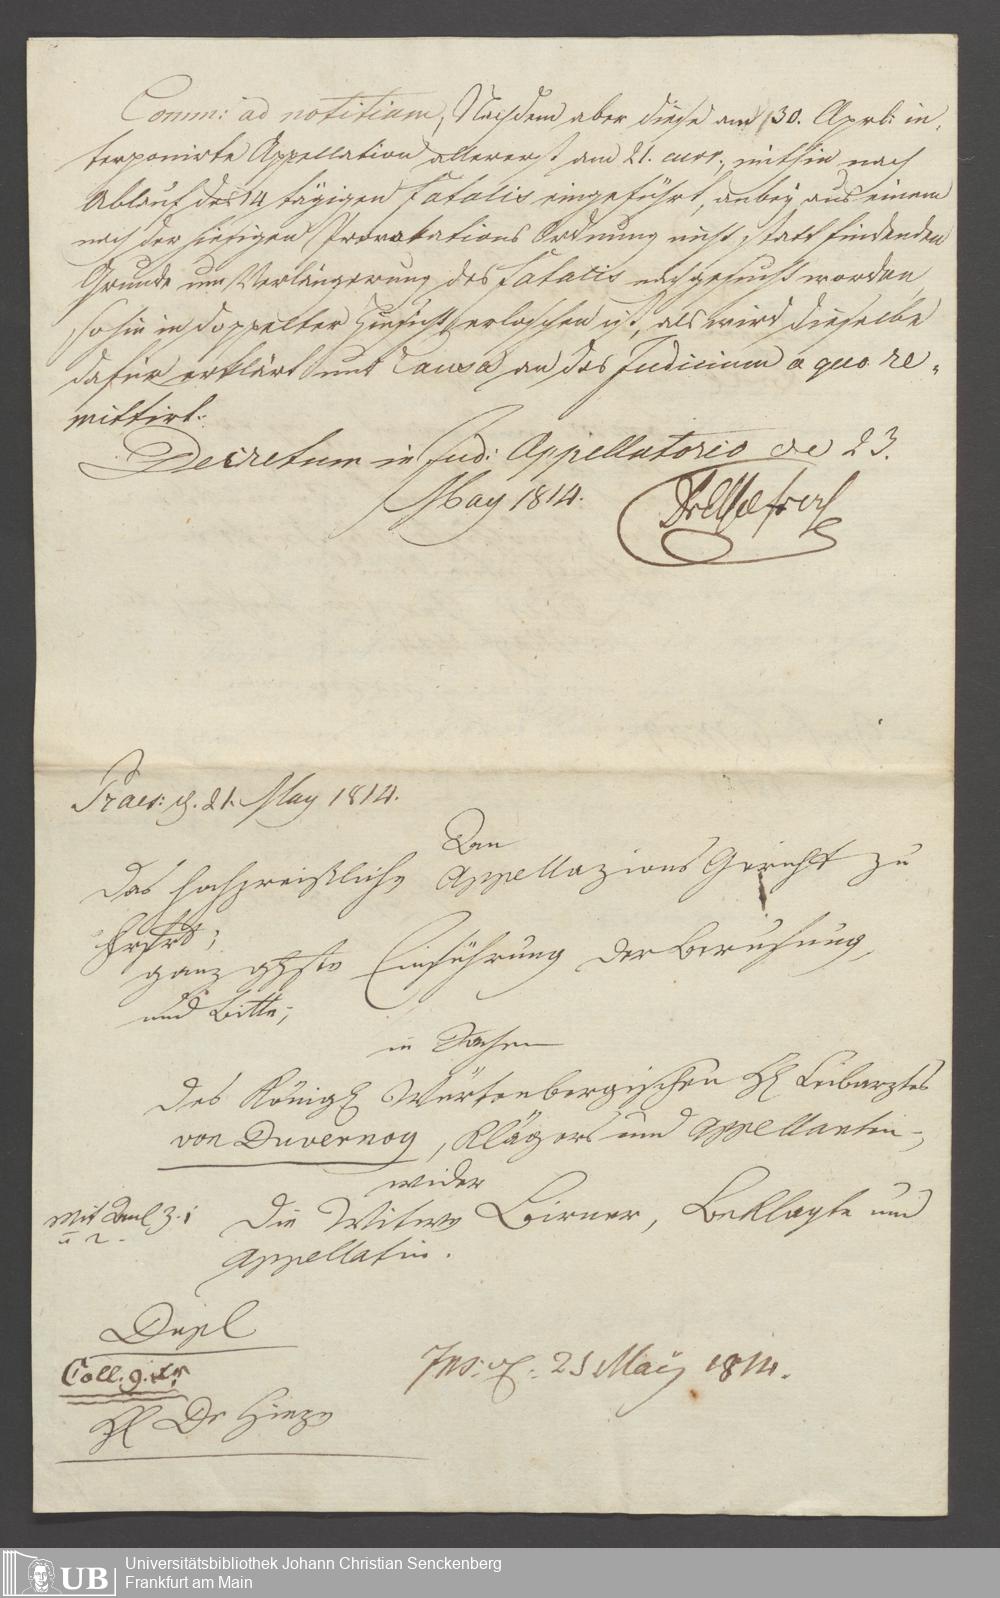 Comm: ad notitiam, Nachdem aber diese am 30. April: in-
terponirte Appellation allererst am 21. curr., mithin nach
Ablauf des 14 tägigen Fatalis eingeführt, anbey aus einem
nach der hiesigen Provokations Ordnung nicht statt findenden
Grunde um Verlängerung des Fatalis nachgesucht worden
sohin in doppelter Hinsicht erloschen ist, als wird dieselbe
dafür erklärt und Causa an das Judicium a quo re-
mittirt.
Decretum in Jud: Appellatorio de 23.
May 1814.
Praes: d. 21. May 1814.
An
das hochpreißliche Appellazions Gericht zu
ganz Einführung der Berufung,
und Bitte;
in Sachen
des Königl Würtenbergischen H Leibarztes
von Duvernoy, Klägers und Appellanten,
wider
Mit Anl 3. 1
u 2.
die Witwe Birner, Beklagte und
Appellatin.
Dupl
Coll. g.
H Dr
Ins. d. 25 May 1814.
Universitätsbibliothek Johann Christian Senckenberg
Frankfurt am Main
UB